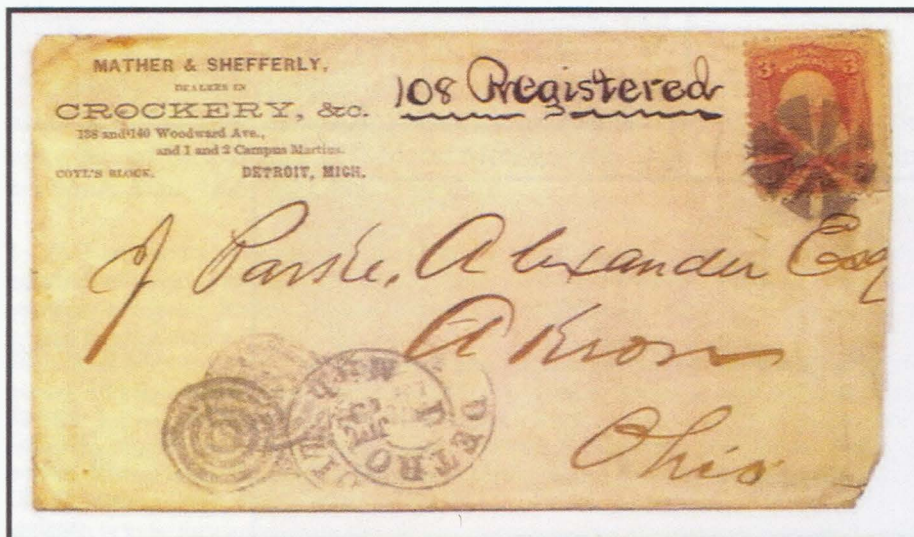 MATHER & SHEFFERLY,
DEALERS IN
CROCKERY, &c.
138 and 140 Woodward Ave.,
and 1 and 2 Campus Martius.
COYL'S BLOCK. DETROIT, MICH.
108 Registered
3 3
J Parske, Alexander Esq
Akron
Ohio
DETROIT